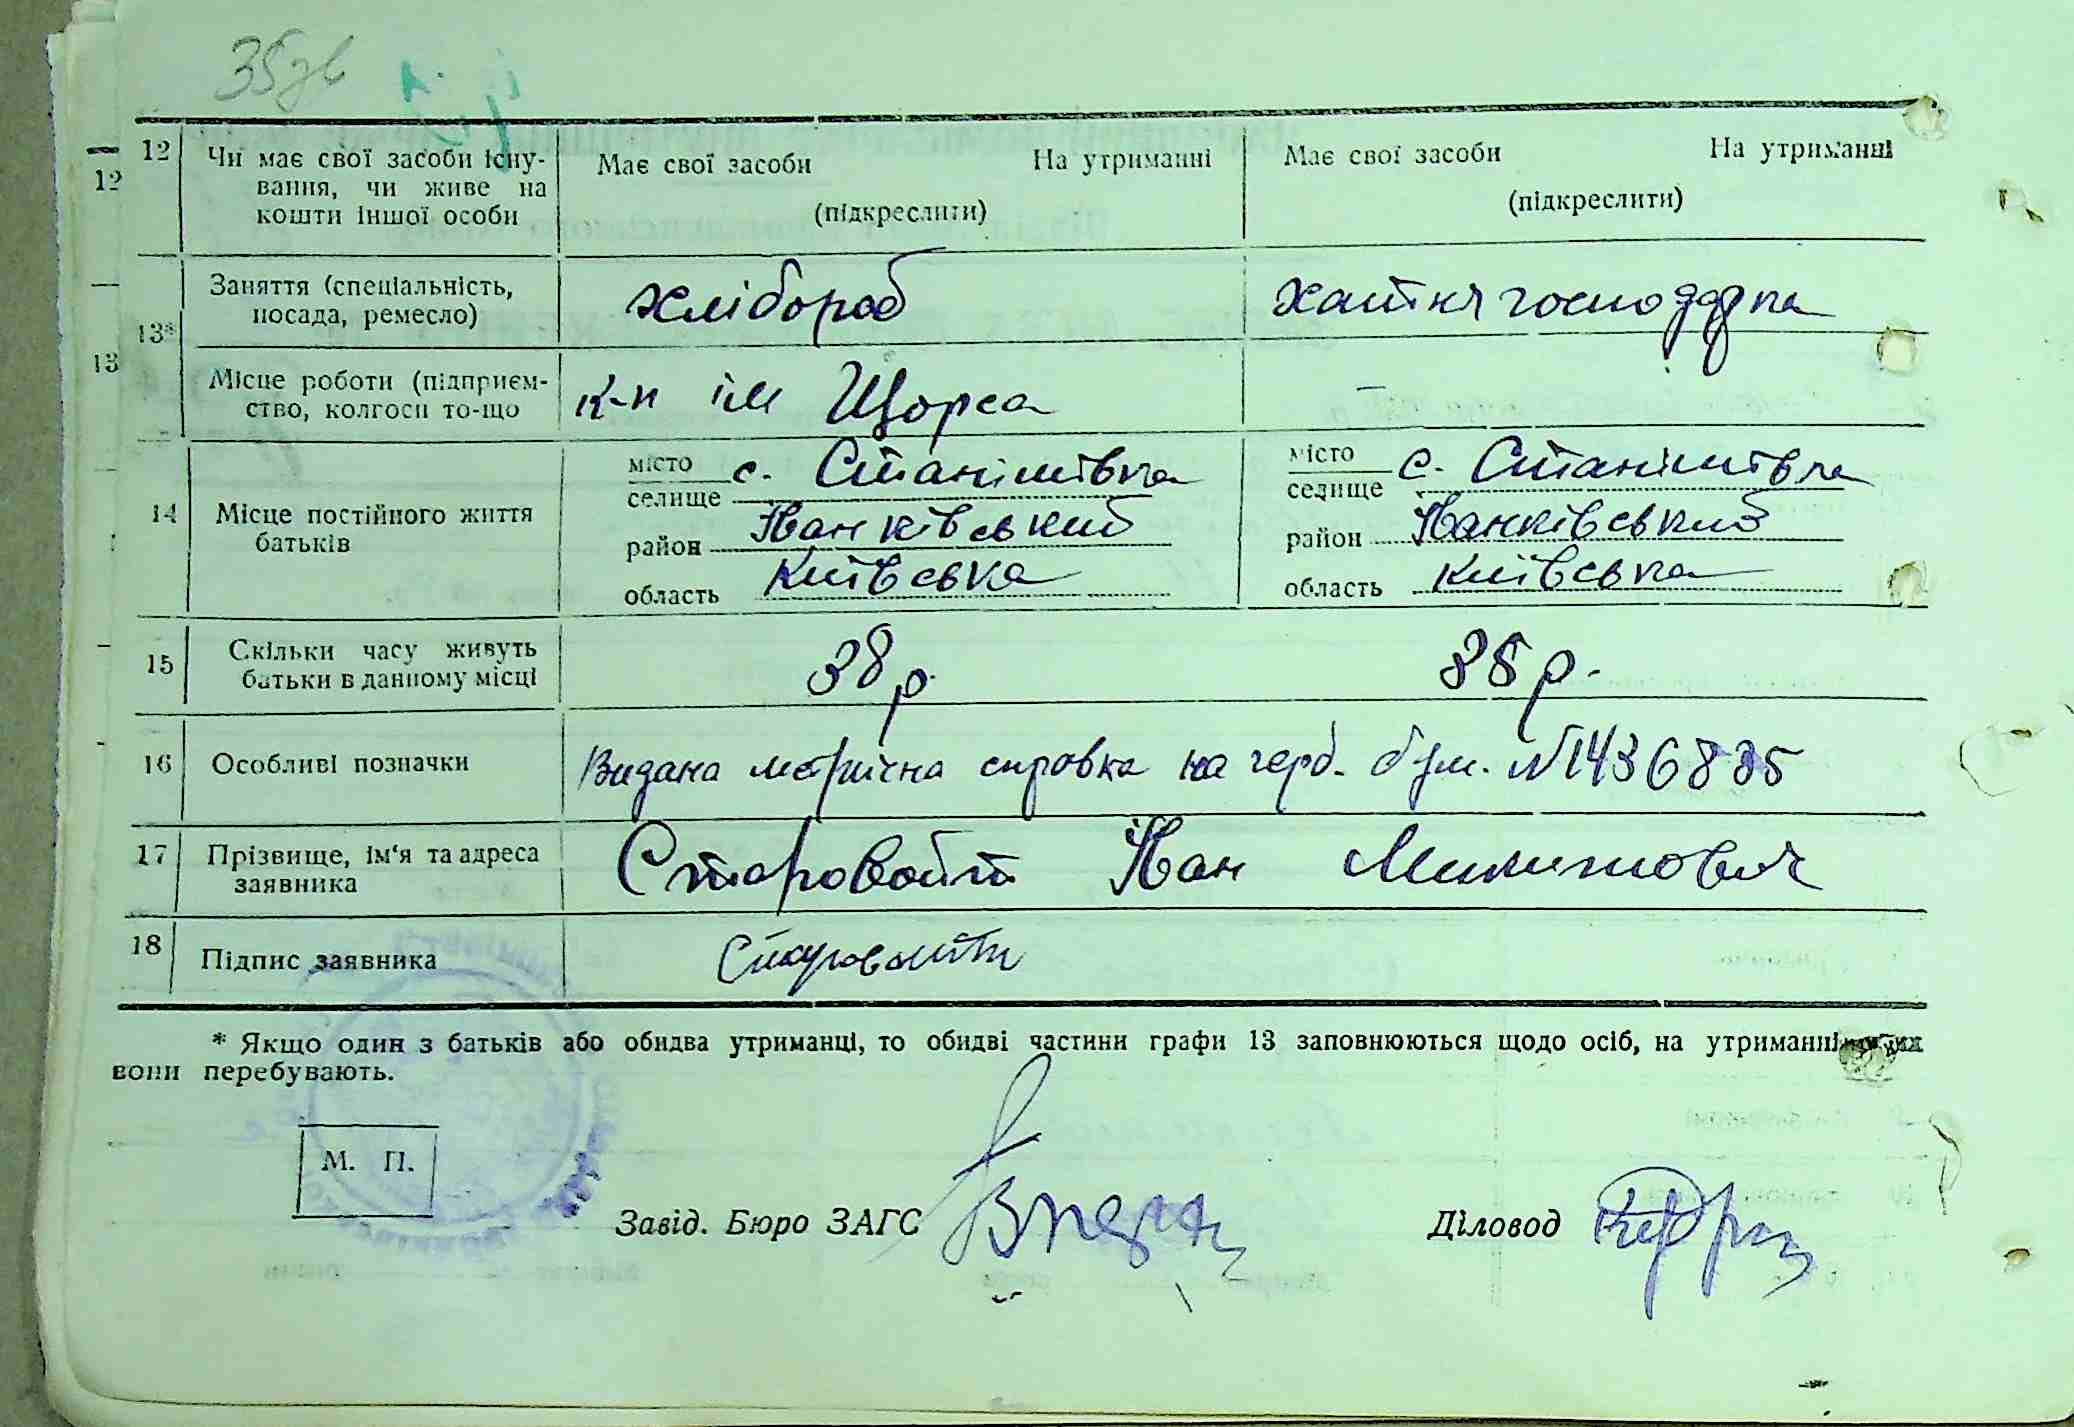 35зв
12 Чи має свої засоби існу- Має свої засоби На утриманні Має свої засоби На утриманні
12 вання, чи живе на
кошти іншої особи (підкреслити) (підкреслити)
Заняття (спеціальність, хлібороб хатня господарка
посада, ремесло)
13*
13 Місце роботи (підприєм- к-п ім Щорса –
ство, колгосп то-що
місто с. Станішівка місто с. Станішівка
селище селище
14 Місце постійного життя район Іванківський район Іванківський
батьків
область Київська область Київська
15 Скільки часу живуть 38 р. 35 р.
батьки в данному місці
16 Особливі позначки Видана метрична справка на герб. бум. №1436835
17 Прізвище, ім'я та адреса Старовойт Іван
заявника
18 Підпис заявника Старовойт
* Якщо один з батьків або обидва утриманці, то обидві частини графи 13 заповнюються щодо осіб, на утриманні яких
вони перебувають.
М. П.
Завід. Бюро ЗАГС Діловод